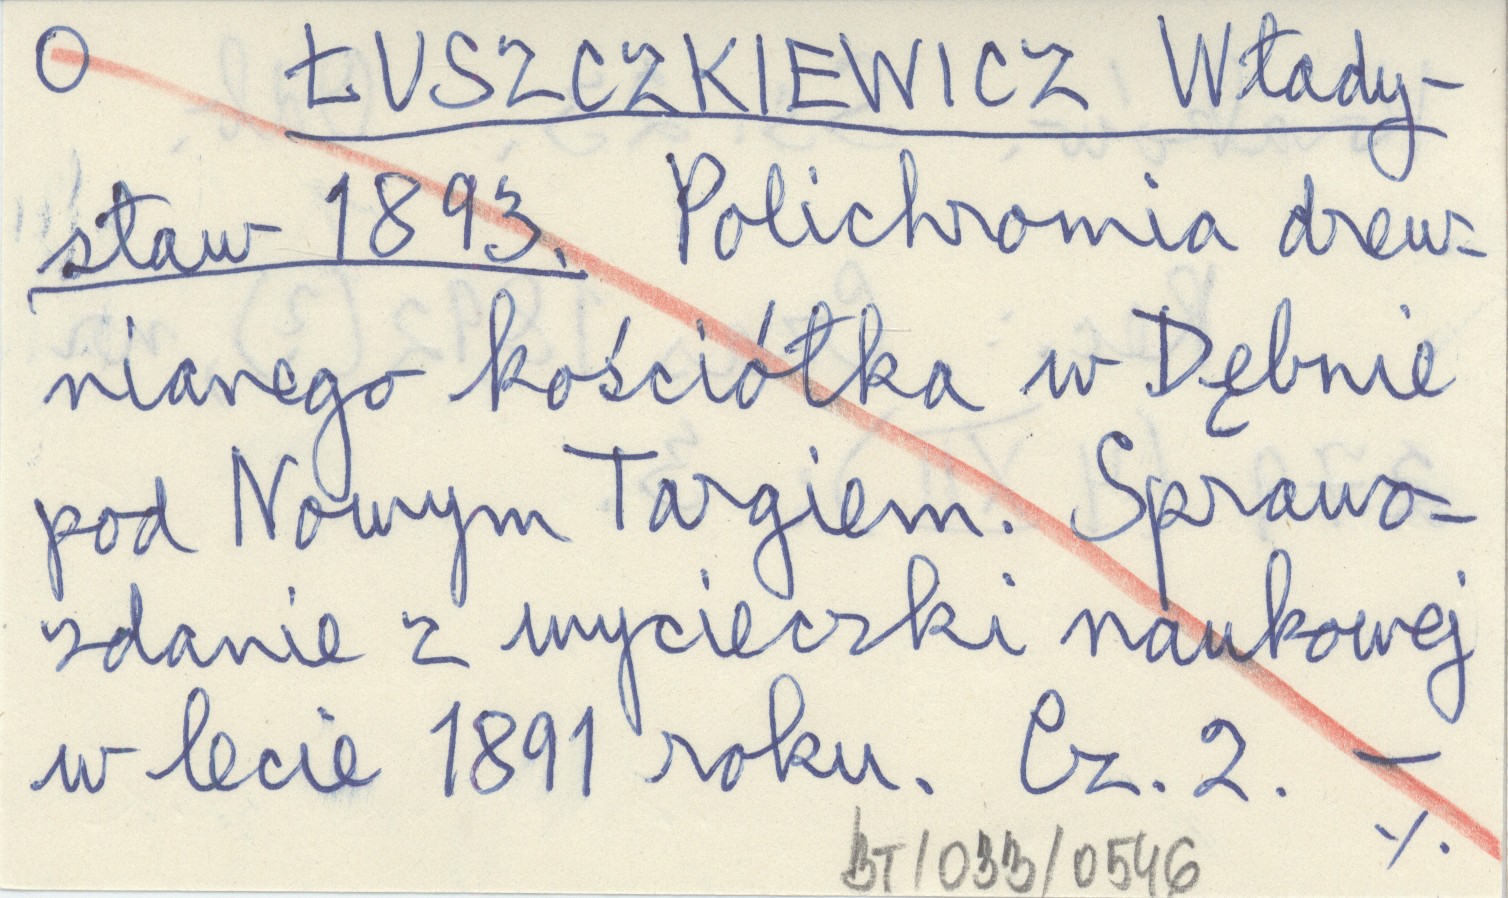 O ŁUSZCZKIEWICZ Włady-
sław 1893. Polichromia drew-
nianego kościółka w Dębnie
pod Nowym Targiem. Sprawo-
zdanie z wycieczki naukowej
w lecie 1891 roku. Cz. 2. —
./.
BT/033/0546